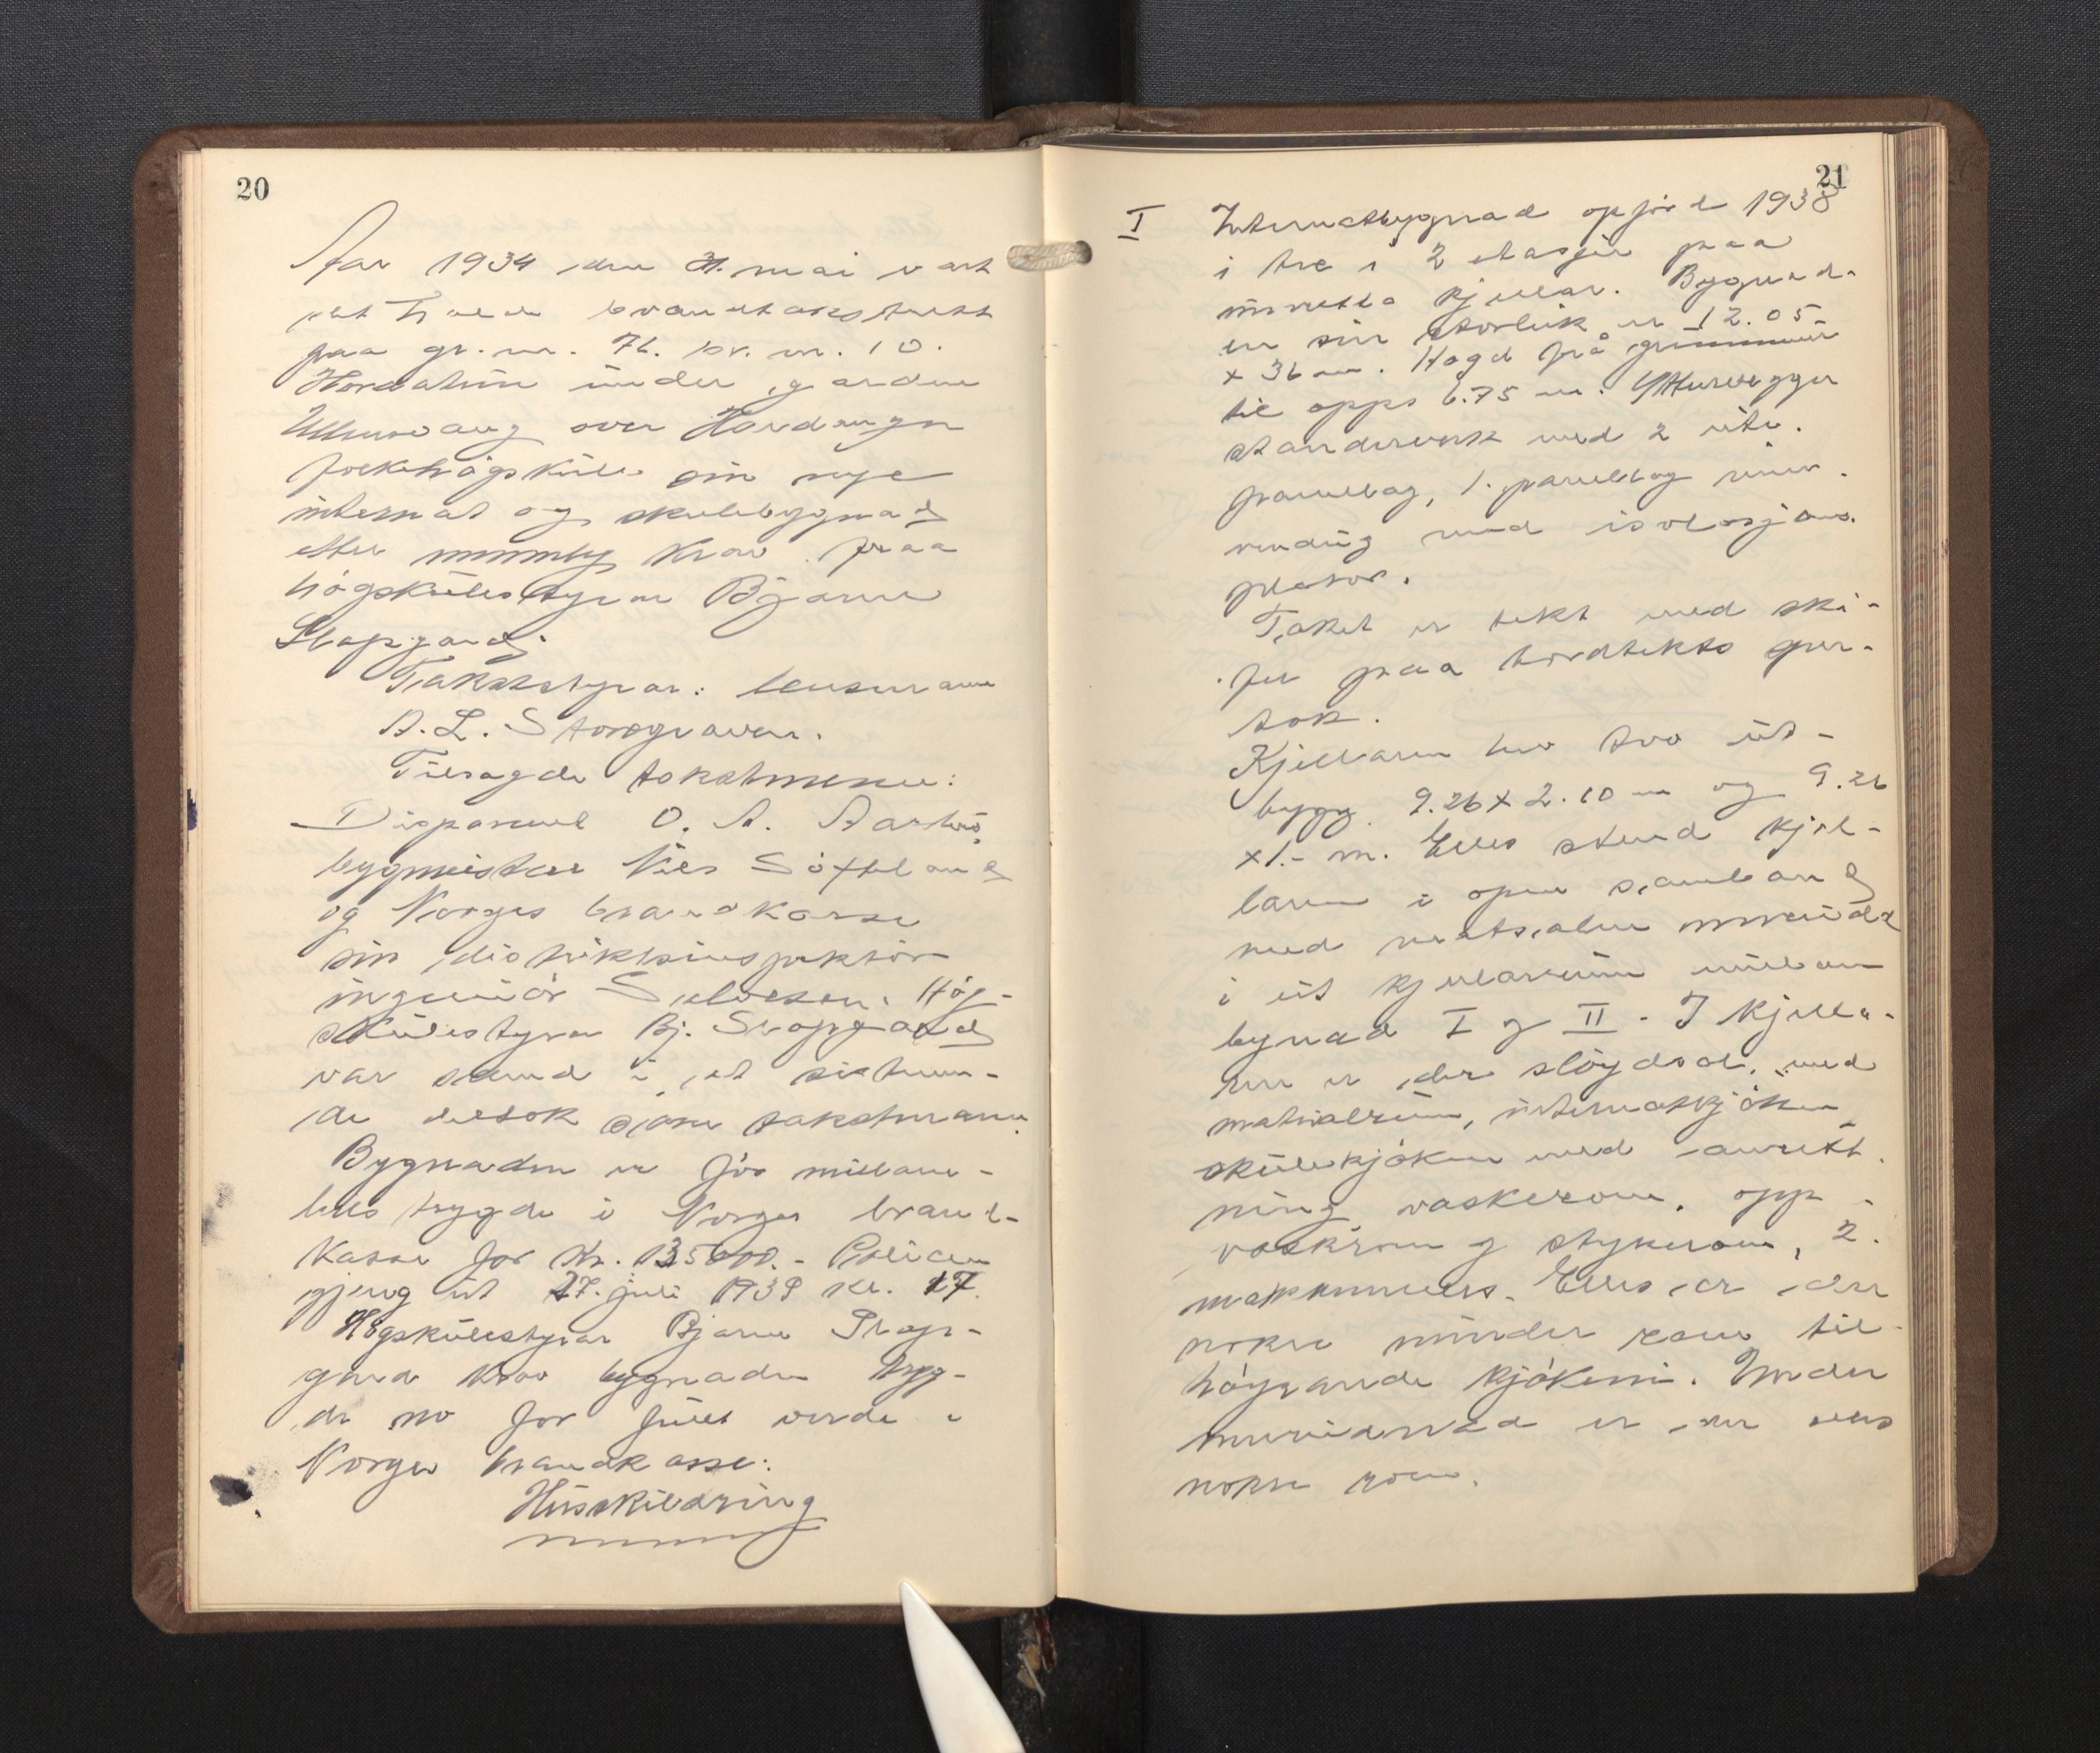 20
Aar 1939 den 31. mai vart
det halde brandtakstrett
paa gr. nr. 76. br. nr. 10.
Hordatun under garden
Ullensvang over Hardanger
folkehøgskule sin nye
internat og skulebygnad
etter munnleg krav fraa
høgskulestyrar Bjarne
Slapgard.
Takststyrar: lensmann
A. L. Storegraven.
Tilsagde takstmenn:
Disponent O. A. Aarhus,
bygmeistar Nils Søfteland
og Norges brandkasse
sin distriktsinspektør
ingeniør Høg-
skulestyrar Bj. Slapgard
var tilstades
som takstmann.
Bygnaden er før millom-
bils trygda i Norges brand-
kasse for Kr. 135000.- Policen
gjeng ut 27. juli 1939 kl. 17.
Høgskulestyrar Bjarne Slap-
gard krav bygnaden tryg-
da no for fullt verde i
Norges brandkasse.
Husskildring
21
I Internatbygnad opført 1938
i tre i 2 etasjer paa
innreidd kjellar. Bygnad-
en sin storleik er 12.05
x 36 m. Høgd frå grunnmur
til opps 6.75 m. Yttervegger
standerverk med 2 utv.
panellag, 1. panellag innv.
vending med isolasjons.
plator.
Taket er tekt med ski-
fer paa bordtekto sper-
tak.
Kjellaren hev tvo ut-
bygg. 9.26 x 2.10 m og 9.26
x 1.- m. Elles stend kjel-
laren i open samband
med
i eit kjellarrum millom
bygnad I og II. I kjella-
ren er der sløydsal, med
materialrum, internatkjøken
skulekjøken med anrett-
ning, vaskerom, opp-
vaskrom og strykerom, 2
matkammers. Elles er der
nokre mindre rom til-
høyrande kjøkeni. Under
er der elles
nokre rom.